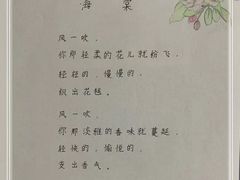 海棠
风一吹，
你那轻柔的花儿就纷飞，
轻轻的，慢慢的，
织出花毯。
风一吹，
你那淡雅的香味就蔓延，
轻快的，愉悦的，
变出香气。